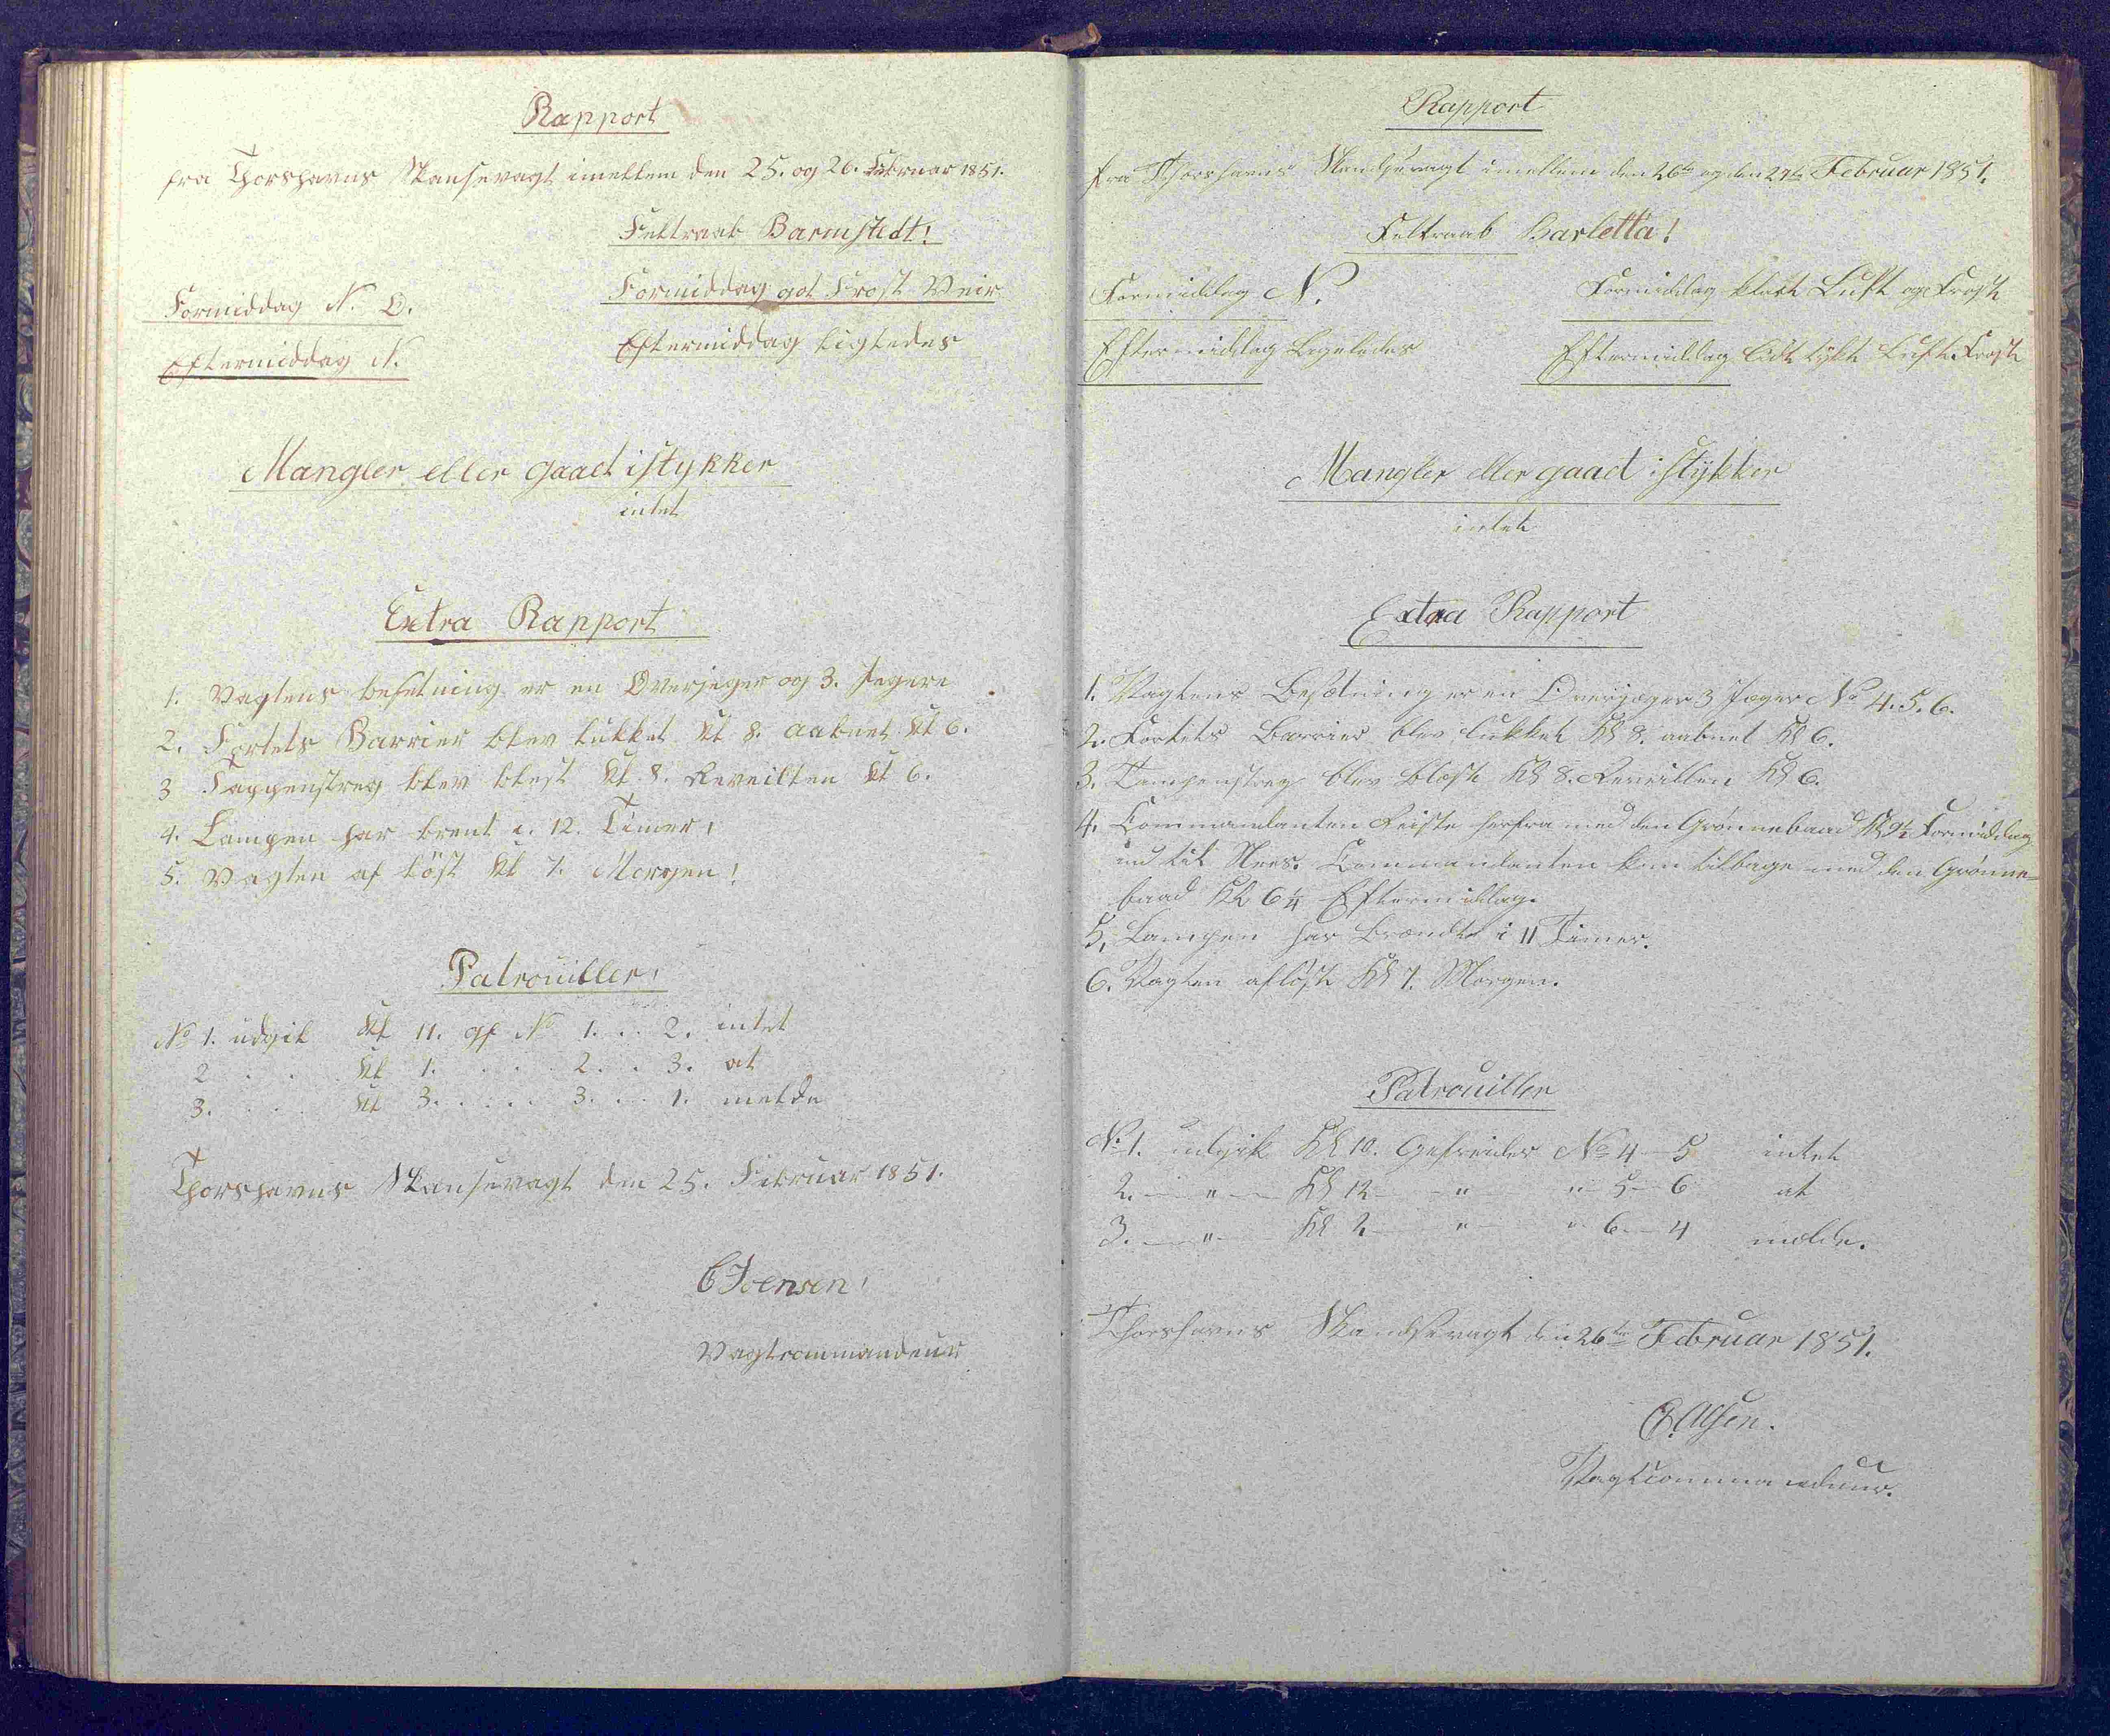 Rapport
fra Thorshavns Skansevagt imellem den 25. og 26. Februar 1851.
Feltraab Barmstedt!
Formiddag N. O.
Formiddag got Frost Veir
Eftermiddag N.
Eftermiddag ligledes
Mangler eller gaaet istykker
intet
Extra Rapport
1. Vagtens besetning er en Overjeger og 3. Jegere
2. Fortets Barrier blev lukket Kl 8. aabnet Kl 6.
3 Tappenstreg blev blest Kl. 8. Reveillen Kl 6.
4. Lampen har brent i. 12. Timer,
5. Vagten af löst Kl 7. Morgen!
Patrouiller,
No 1. udgik Kl 11. gf No 1. . . 2. intet
2 . . . Kl 1. . . . . 2. . . 3. at
3. . . . Kl 3. . . . . 3. . . 1. melde
Thorshavns Skansevagt den 25. Februar 1851.
C Joensen,
Vagtcommandeur
Rapport
fra Thorshavns Skandsevagt imellem den 26de og den 27de Februar 1851.
Feltraab Barletta!
Formiddag N.
Formiddag klart Luft og Frost
Eftermiddag Ligeledes
Eftermiddag lidt tykt Luft Frost
Mangler eller gaaet istykker
intet
Extra Rapport
1. Vagtens Besætning er en Overjæger 3 Jæger No 4. 5. 6.
2. Fortets Barrier blev lukket Kl 8. aabnet Kl 6.
3. Tampenstreg blev blæst Kl 8. Reveillen Kl 6.
4. Commandanten Reiste herfra med den Grønnebaad Kl 9½ Formiddag
ind til Næs. Commandanten kom tilbage med den Grønne=
baad Kl 6¼ Eftermiddag.
5, Lampen har Brændt i 11 Timer.
6. Vagten afløst Kl 7. Morgen.
Patrouiller
No 1. udgik Kl 10. Gefreider No 4 - 5 intet
2. — " — Kl 12 — " — " - 5 - 6 at
3. — " — Kl 2 — " — " 6. - 4 melde.
Thorshavns Skandsevagt den 26de Februar 1851.
Vagtcommandeur.